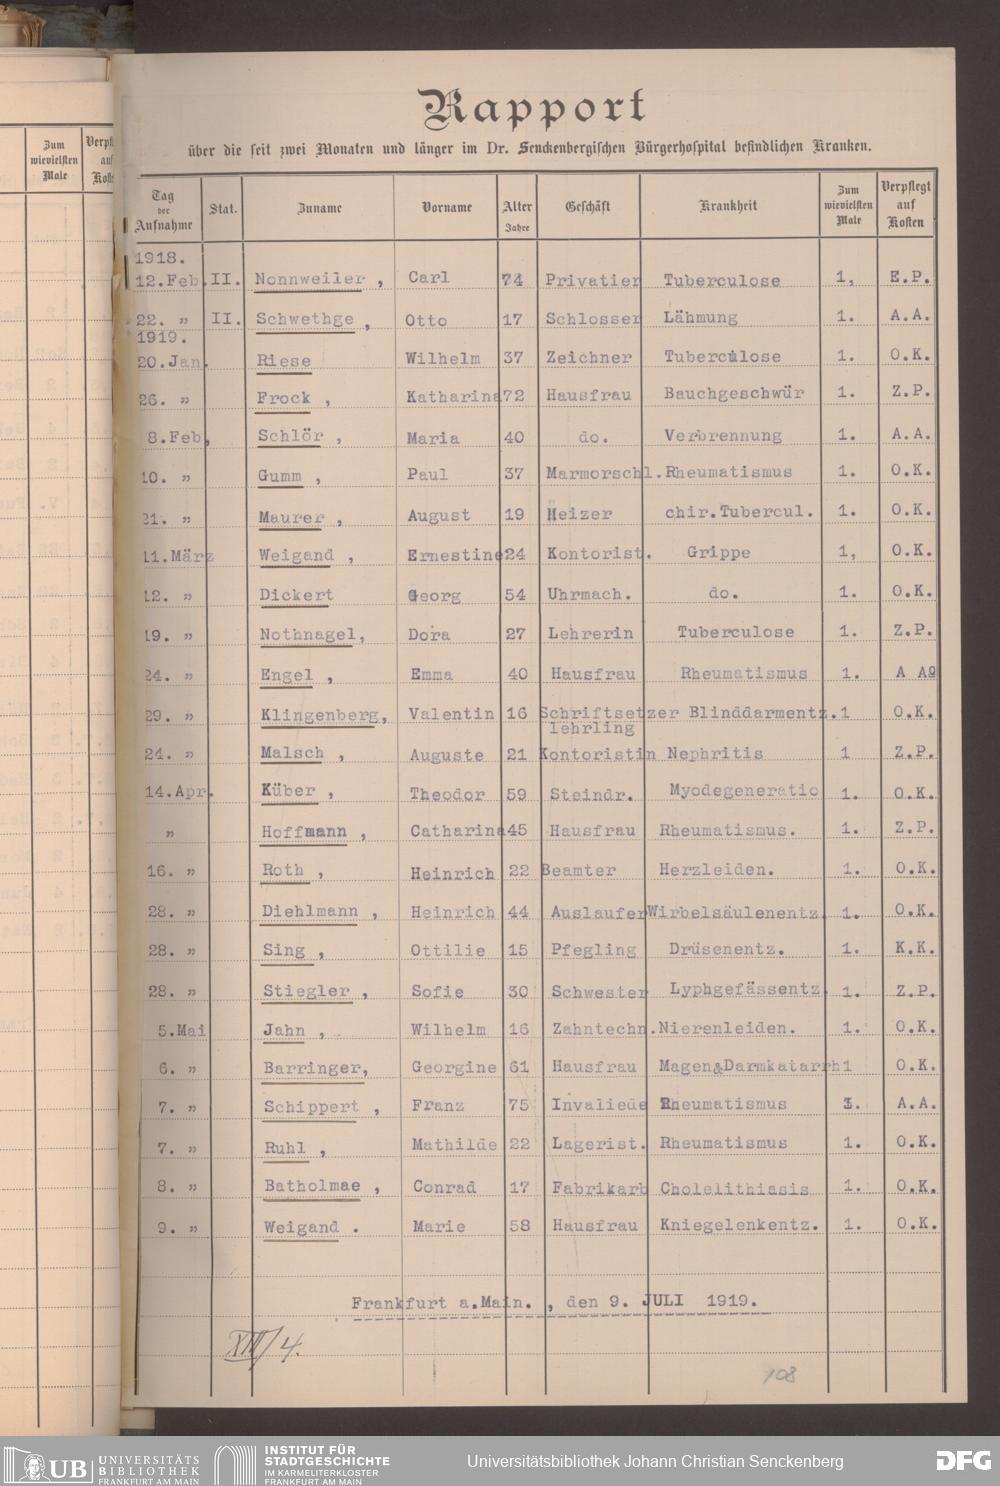 Rapport
über die seit zwei Monaten und länger im Dr. Senckenbergischen Bürgerhospital befindlichen Kranken.
Zum wievielsten Male
Tag der Aufnahme Stat. Zuname Vorname Alter Jahre Geschäft Krankheit Zum wievielsten Male Verpflegt auf Kosten
1918.
12.Feb.II. Nonnweiler, Carl 74 Privatier Tuberculose 1, E.P.
22. " II. Schwethge, Otto 17 Schlosser Lähmung 1. A.A.
1919.
20.Jan. Riese Wilhelm 37 Zeichner Tuberculose 1. O.K.
26. " Frock, Katharina 72 Hausfrau Bauchgeschwür 1. Z.P.
8.Feb, Schlör, Maria 40 do. Verbrennung 1. A.A.
10. " Gumm, Paul 37 Marmorschl. Rheumatismus 1. O.K.
21. " Maurer, August 19 Heizer chir.Tubercul. 1. O.K.
11.März Weigand, Ernestine 24 Kontorist. Grippe 1, O.K.
12. " Dickert Georg 54 Uhrmach. do. 1. O.K.
19. " Nothnagel, Dora 27 Lehrerin Tuberculose 1. Z.P.
24. " Engel, Emma 40 Hausfrau Rheumatismus 1. A Ao
29. " Klingenberg, Valentin 16 Schriftsetzer Blinddarmentz. 1 O.K.
lehrling
24. " Malsch, Auguste 21 Kontoristin Nephritis 1 Z.P.
14.Apr. Küber, Theodor 59 Steindr. Myodegeneratio 1. O.K.
" Hoffmann, Catharina 45 Hausfrau Rheumatismus. 1. Z.P.
16. " Roth, Heinrich 22 Beamter Herzleiden. 1. O.K.
28. " Diehlmann, Heinrich 44 Auslaufer Wirbelsäulenentz. 1. O.K.
28. " Sing, Ottilie 15 Pfegling Drüsenentz. 1. K.K.
28. " Stiegler, Sofie 30 Schwester Lyphgefässentz. 1. Z.P.
5.Mai Jahn, Wilhelm 16 Zahntechn. Nierenleiden. 1. O.K.
6. " Barringer, Georgine 61 Hausfrau Magen&Darmkatarrh 1 O.K.
7. " Schippert, Franz 75 Invaliede Rheumatismus A.A.
7. " Ruhl, Mathilde 22 Lagerist. Rheumatismus 1. O.K.
8. " Batholmae, Conrad 17 Fabrikarb Cholelithiasis 1. O.K.
9. " Weigand. Marie 58 Hausfrau Kniegelenkentz. 1. O.K.
Frankfurt a.Main., den 9. JULI 1919.
XIII/4.
108
UB UNIVERSITÄTS BIBLIOTHEK FRANKFURT AM MAIN
INSTITUT FÜR STADTGESCHICHTE IM KARMELITERKLOSTER FRANKFURT AM MAIN
Universitätsbibliothek Johann Christian Senckenberg
DFG